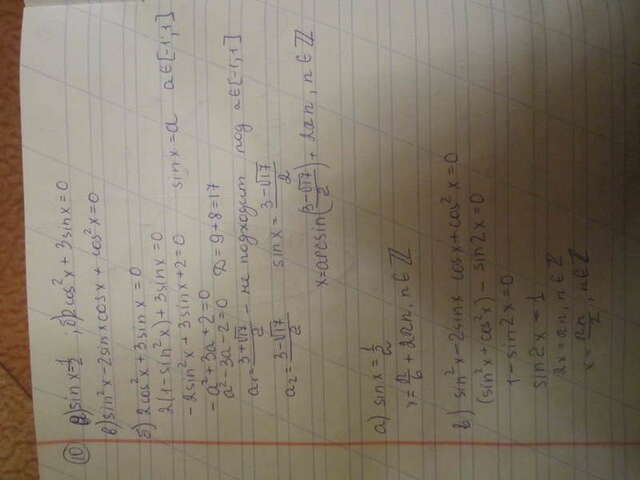 10 а) sin x = 1/2 ; б) 2cos²x + 3sinx = 0
в) sin²x - 2sinxcosx + cos²x = 0
б) 2cos²x + 3sinx = 0
2(1 - sin²x) + 3sinx = 0
-2sin²x + 3sinx + 2 = 0 sinx = a a ∈ [-1; 1]
-a² + 3a + 2 = 0
a² - 3a - 2 = 0 D = 9 + 8 = 17
a₁ = (3 + √17)/2 - не подходит под a ∈ [-1; 1]
a₂ = (3 - √17)/2 sinx = (3 - √17)/2
x = arcsin((3 - √17)/2) + 2πn, n ∈ ℤ
а) sinx = 1/2
x = π/6 + 2πn, n ∈ ℤ
в) sin²x - 2sinx cosx + cos²x = 0
(sin²x + cos²x) - sin2x = 0
1 - sin2x = 0
sin2x = 1
2x = πn, n ∈ ℤ
x = πn/2, n ∈ ℤ